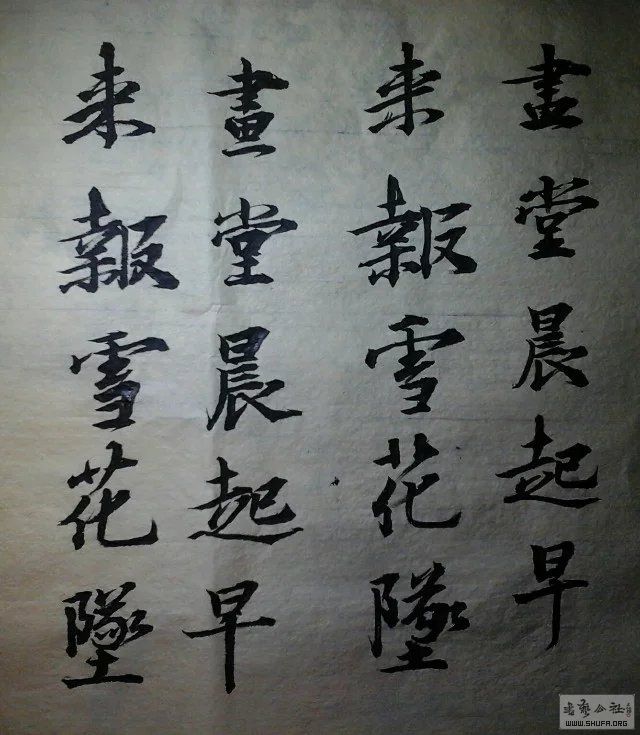 畫堂晨起早
来報雪花墜
畫堂晨起早
来報雪花墜
WWW.SHUFA.ORG